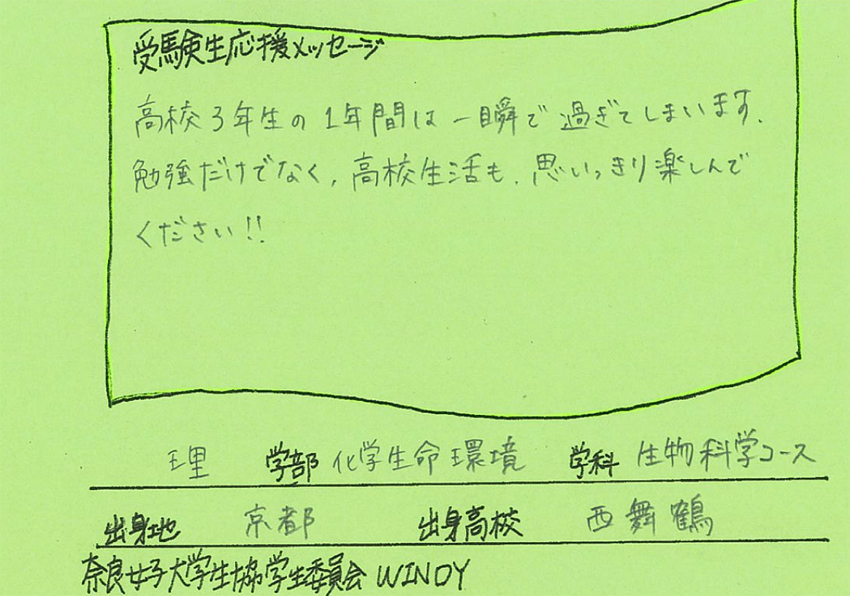 受験生応援メッセージ
高校3年生の1年間は一瞬で過ぎてしまいます.
勉強だけでなく,高校生活も,思いっきり楽しんで
ください!!
理 学部 化学生命環境 学科 生物科学コース
出身地 京都 出身高校 西舞鶴
奈良女子大学生協学生委員会 WINDY